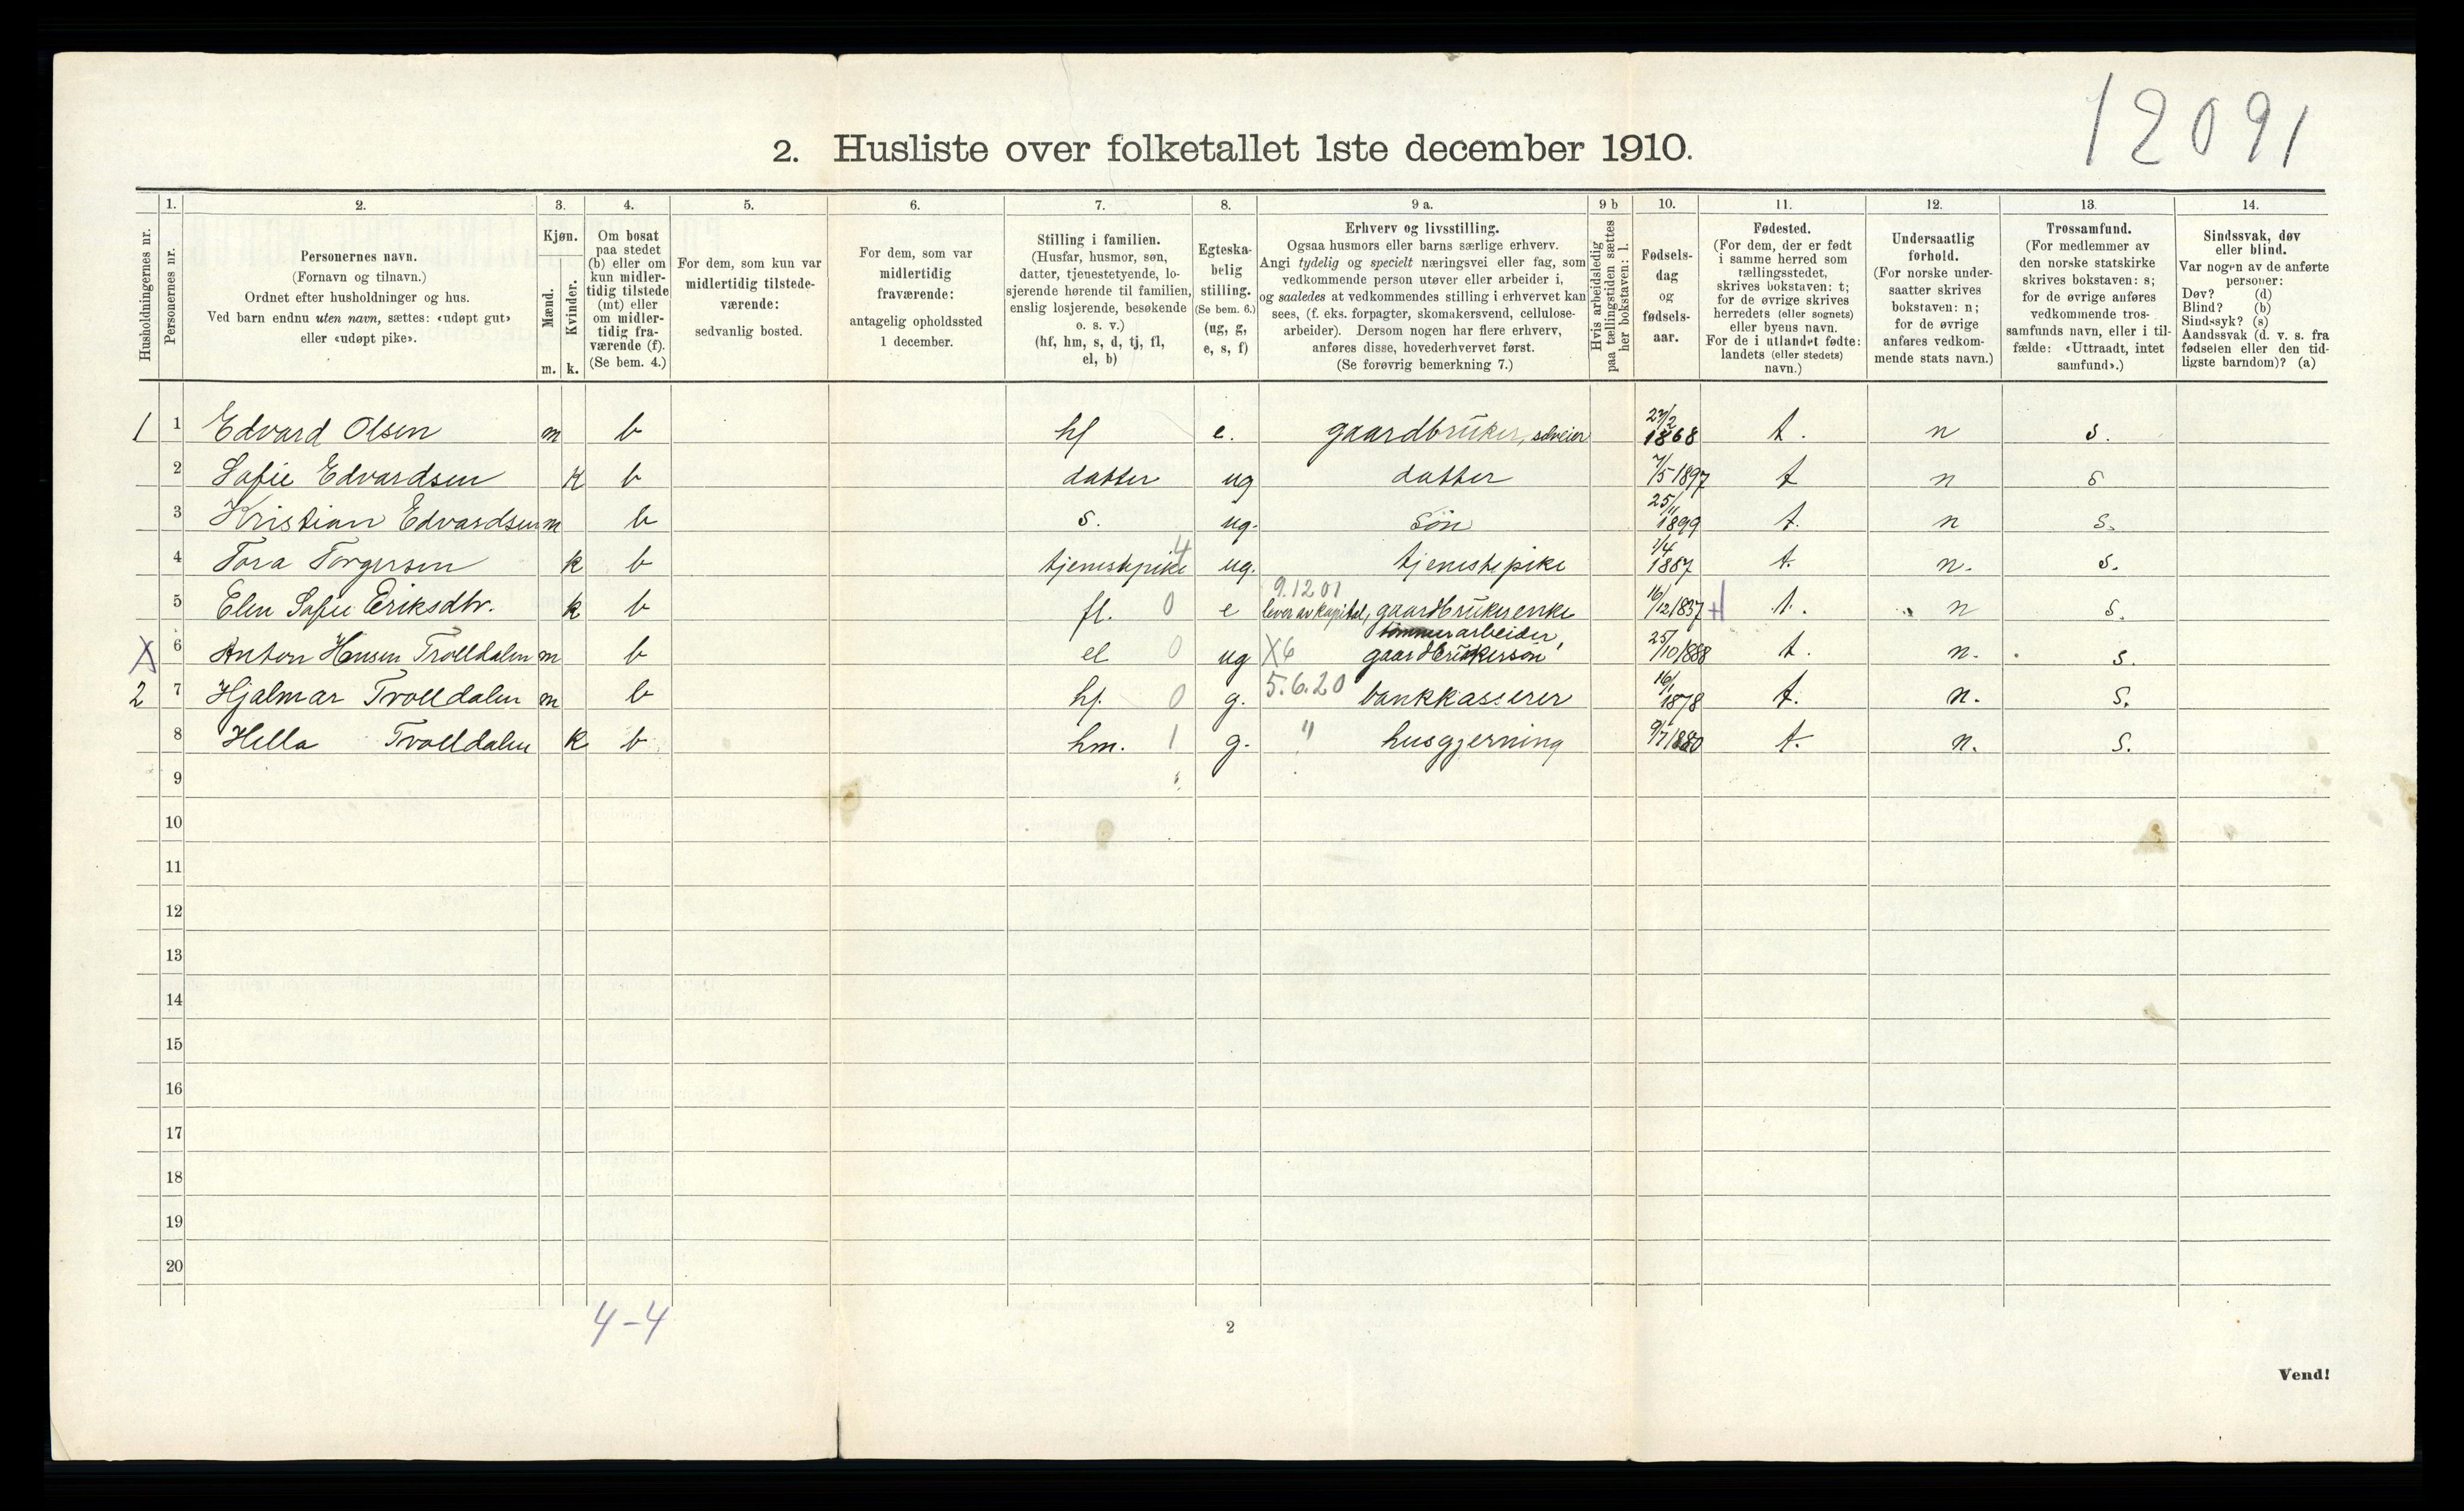 12091
2. Husliste over folketallet 1ste december 1910.
Husholdningernes nr.
1.
Personernes nr.
2.
Personernes navn.
(Fornavn og tilnavn.)
Ordnet efter husholdninger og hus.
Ved barn endnu uten navn, sættes: «udøpt gut»
eller «udøpt pike».
3.
Kjøn.
Mænd.
Kvinder.
m. k.
4.
Om bosat
paa stedet
(b) eller om
kun midler-
tidig tilstede
(mt) eller
om midler-
tidig fra-
værende (f).
(Se bem. 4.)
5.
For dem, som kun var
midlertidig tilstede-
værende:
sedvanlig bosted.
6.
For dem, som var
midlertidig
fraværende:
antagelig opholdssted
1 december.
7.
Stilling i familien.
(Husfar, husmor, søn,
datter, tjenestetyende, lo-
sjerende hørende til familien,
enslig losjerende, besøkende
o. s. v.)
(hf, hm, s, d, tj, fl,
el, b)
8.
Egteska-
belig
stilling.
(Se bem. 6.)
(ug, g,
e, s, f)
9 a.
Erhverv og livsstilling.
Ogsaa husmors eller barns særlige erhverv.
Angi tydelig og specielt næringsvei eller fag, som
vedkommende person utøver eller arbeider i,
og saaledes at vedkommendes stilling i erhvervet kan
sees, (f. eks. forpagter, skomakersvend, cellulose-
arbeider). Dersom nogen har flere erhverv,
anføres disse, hovederhvervet først.
(Se forøvrig bemerkning 7.)
9 b
Hvis arbeidsledig
paa tællingstiden sættes
her bokstaven: l.
10.
Fødsels-
dag
og
fødsels-
aar.
11.
Fødested.
(For dem, der er født
i samme herred som
tællingsstedet,
skrives bokstaven: t;
for de øvrige skrives
herredets (eller sognets)
eller byens navn.
For de i utlandet fødte:
landets (eller stedets)
navn.)
12.
Undersaatlig
forhold.
(For norske under-
saatter skrives
bokstaven: n;
for de øvrige
anføres vedkom-
mende stats navn.)
13.
Trossamfund.
(For medlemmer av
den norske statskirke
skrives bokstaven: s;
for de øvrige anføres
vedkommende tros-
samfunds navn, eller i til-
fælde: «Uttraadt, intet
samfund».)
14.
Sindssvak, døv
eller blind.
Var nogen av de anførte
personer:
Døv? (d)
Blind? (b)
Sindssyk? (s)
Aandssvak (d. v. s. fra
fødselen eller den tid-
ligste barndom)? (a)
1 1 Edvard Olsen m b hf e. gaardbruker, selveier 27/2 1868 t. n s.
2 Sofie Edvardsen k b datter ug datter 7/5 1897 t n s
3 Kristian Edvardsen m b s. ug. søn 25/11 1899 t. n s.
4 Tora Torgersen k b tjenestepike 4 ug. tjenestepike 1/4 1857 t. n. s.
9.12 01
5 Elen Sofie Eriksdtr. k b fl. 0 e lever av kapital, gaardbrukerenke 16/12 1837 t. n s.
tømmerarbeider,
X 6 Anton Hansen Trolldalen m b el 0 ug X6 gaardbrukersøn 25/10 1888 t. n. s.
2 7 Hjalmar Trolldalen m b hf. 0 g. 5.6.20 bankkasserer 16/1 1878 t. n. s.
8 Hella Trolldalen k b hm. 1 g. " husgjerning 9/7 1880 t. n. s.
9
10
11
12
13
14
15
16
17
18
19
20
4-4
2
Vend!